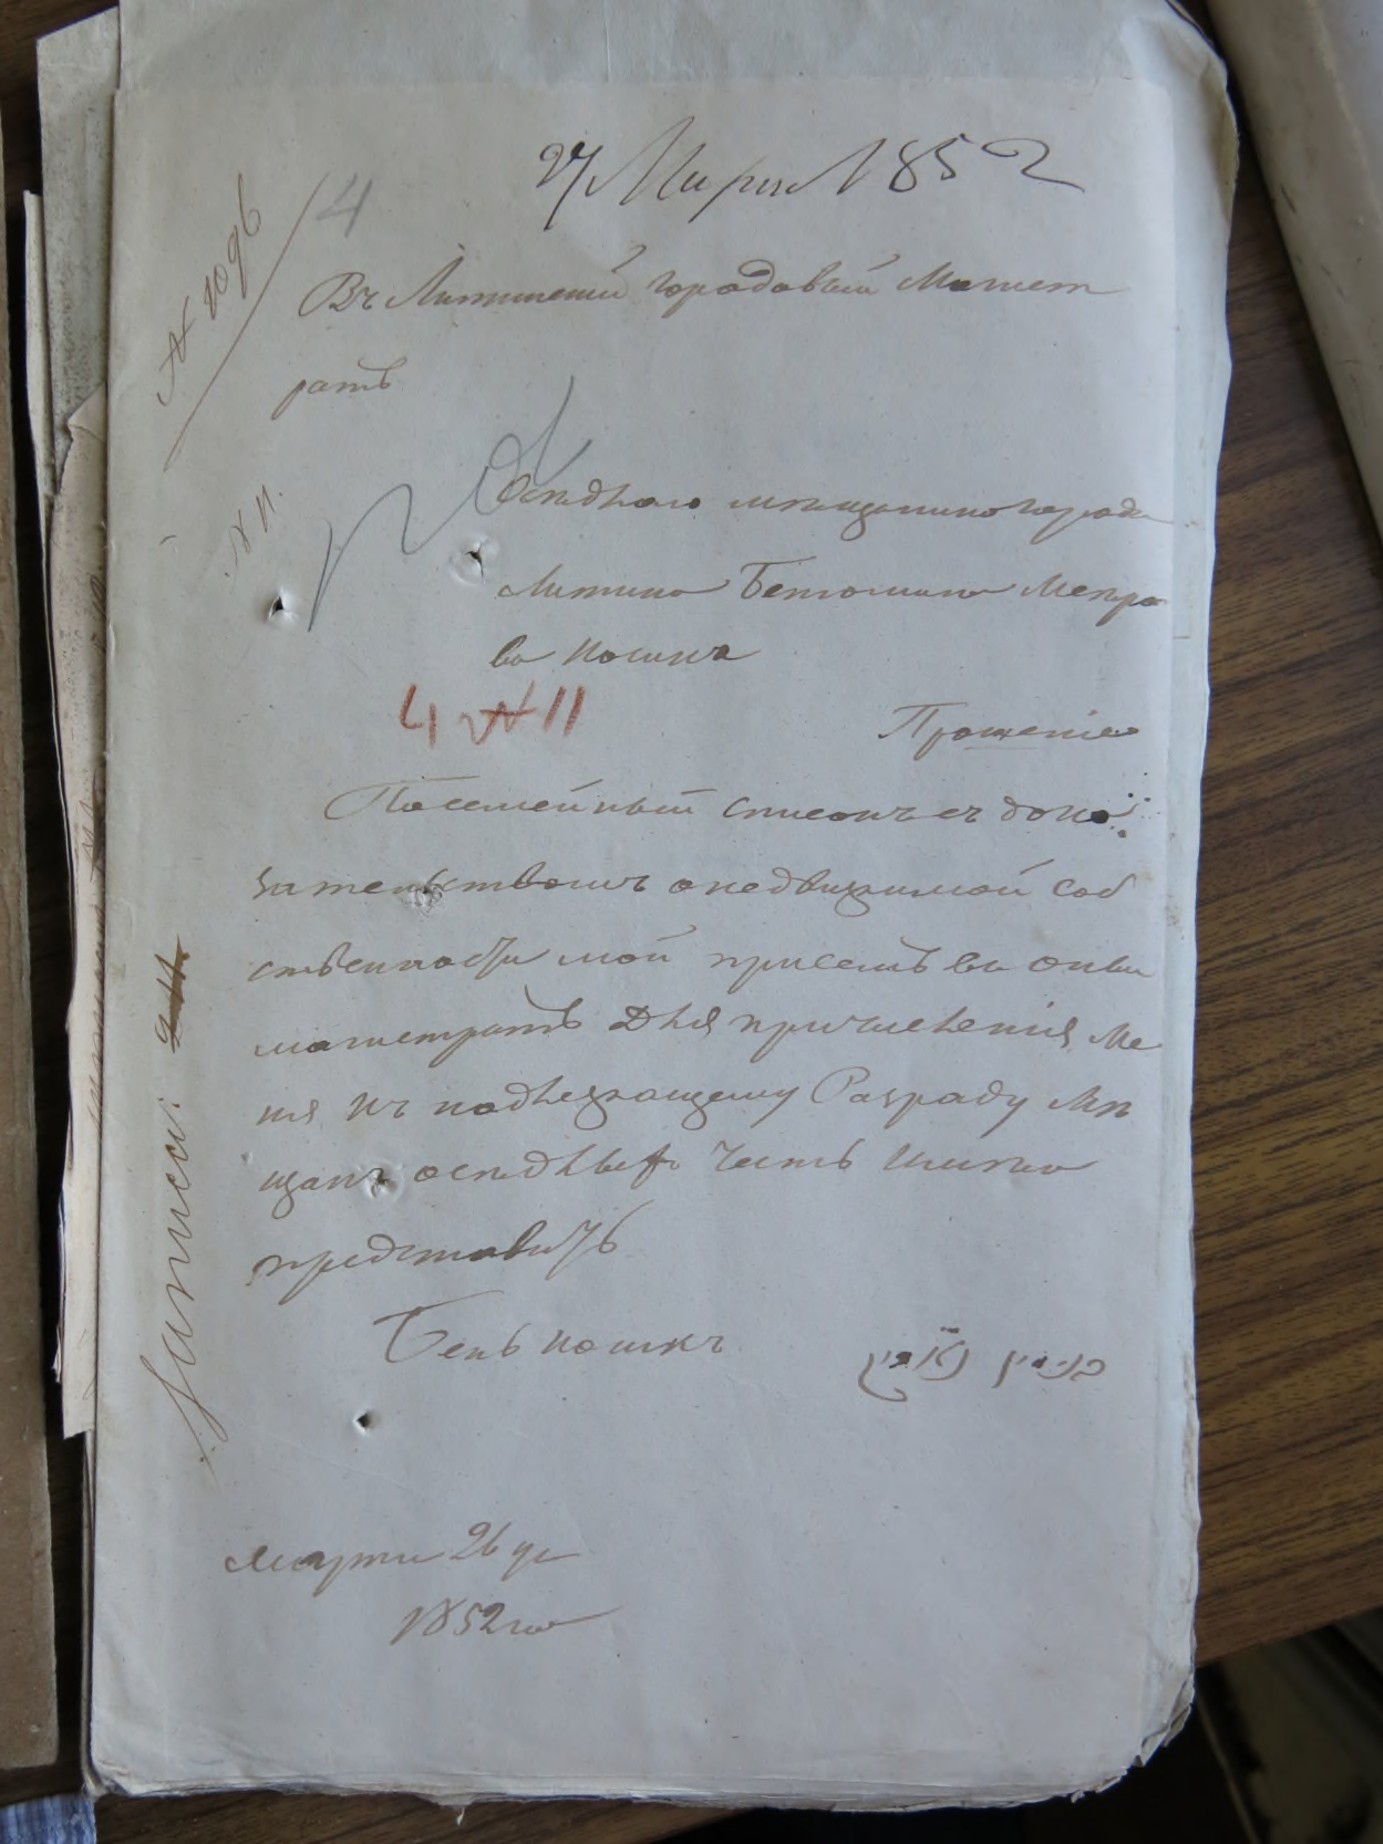 27 Марта 1852
№ 1096
4
Въ Литинский городовый Магист
ратъ
№ 11.
Оседлаго мещанина города
Литина Бениомина Меера
ва Кошка
4 № 11
Прошение
Посемейный список съ дока
зательствомъ о недвижимой соб
ственности мой присемъ во оный
магистратъ для причисления ме
ня къ подлежащему Разряду ме
щанъ оседлых честь имею
представить
Бень Кошкъ
Записат:
Марта 26 дня
1852 го